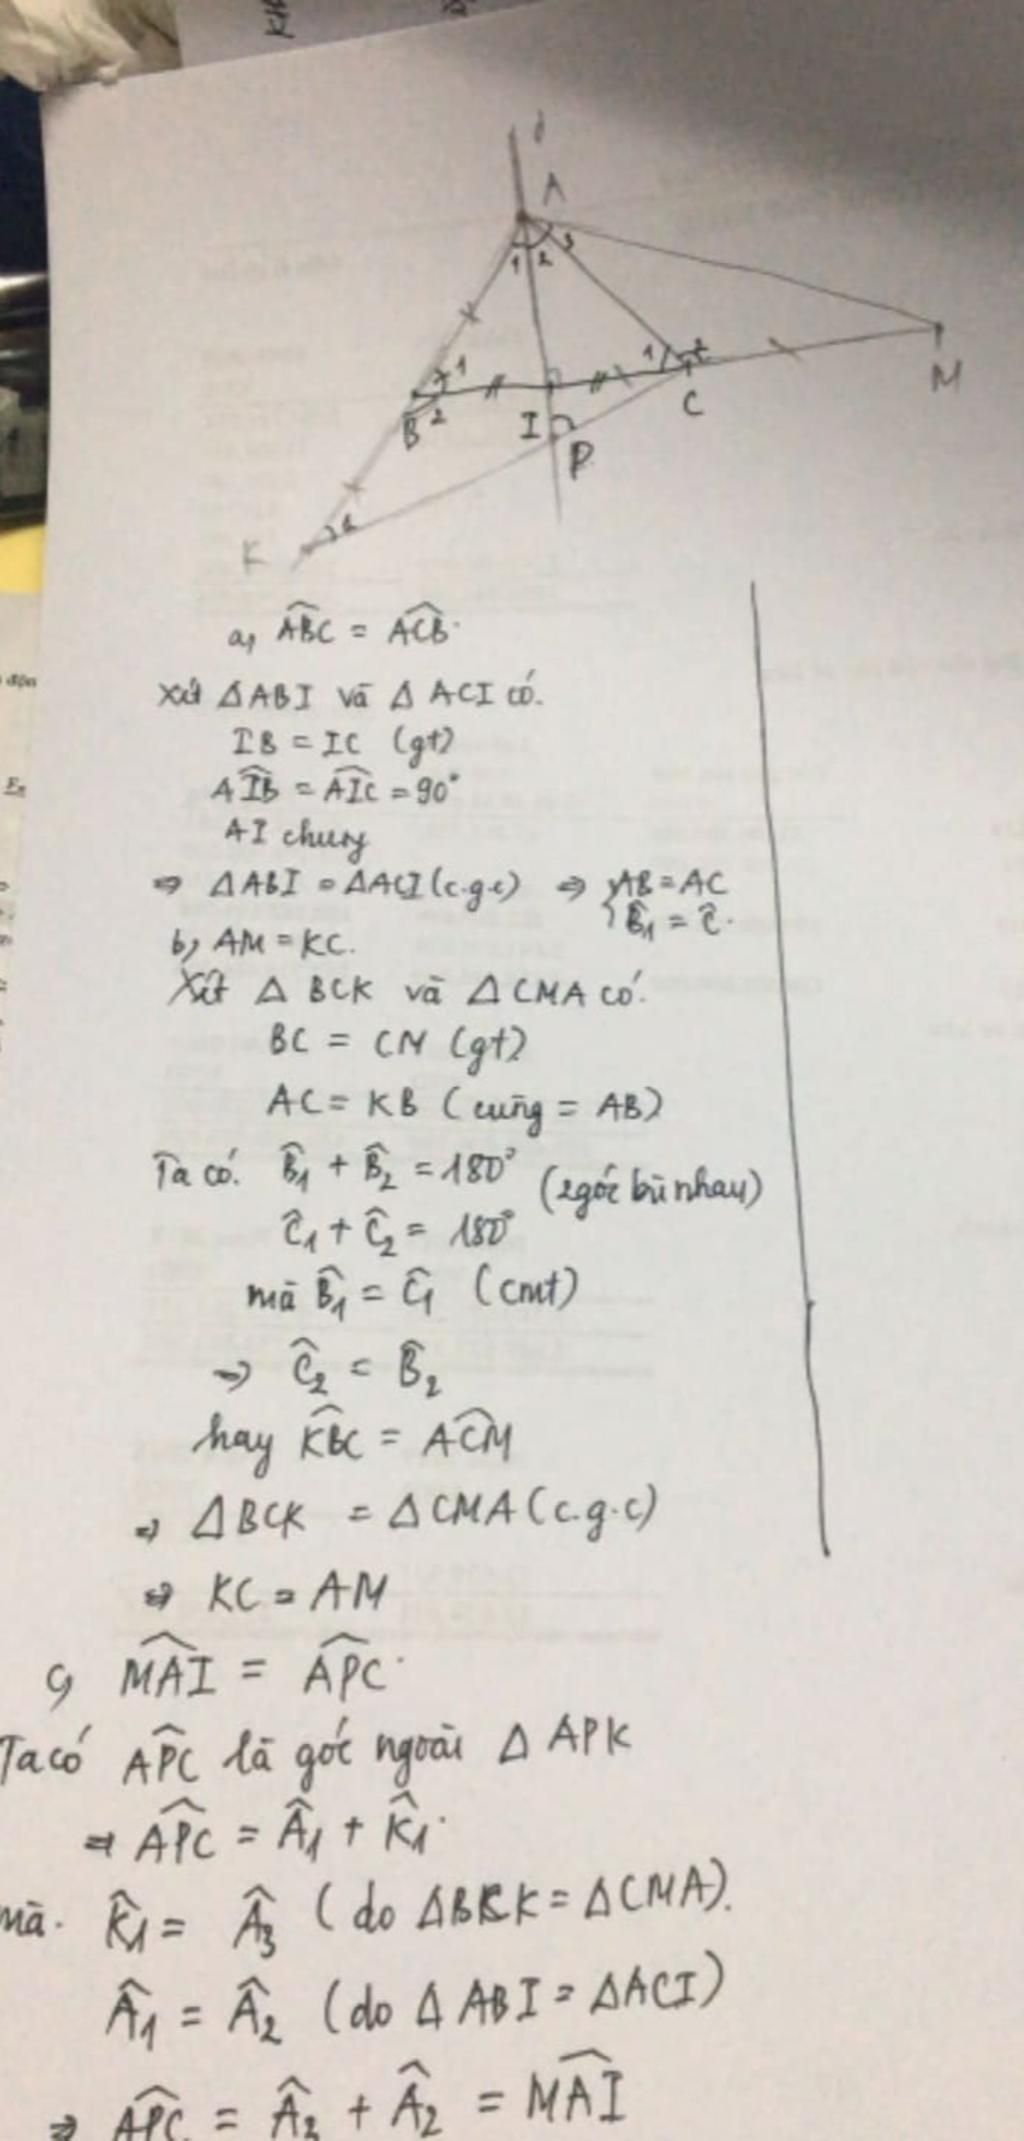 d
A
1 2 3
1
1 2
M
B 2
I
C
P
K 1
a, ABC = ACB.
Xét Δ ABI và Δ ACI có.
IB = IC (gt)
AIB = AIC = 90°
AI chung
=> ΔABI = ΔACI (c.g.c) => { AB = AC
B1 = C.
b, AM = KC.
Xét Δ BCK và Δ CMA có.
BC = CM (gt)
AC = KB (cùng = AB)
Ta có. B̂1 + B̂2 = 180° (2 góc bù nhau)
Ĉ1 + Ĉ2 = 180°
mà B̂1 = Ĉ1 (cmt)
=> Ĉ2 = B̂2
hay KBC = ACM
=> ΔBCK = ΔCMA (c.g.c)
=> KC = AM
c, MAI = APC.
Ta có APC là góc ngoài Δ APK
=> APC = Â1 + K̂1.
mà. K̂1 = Â3 (do ΔBCK = ΔCMA).
Â1 = Â2 (do Δ ABI = ΔACI)
=> APC = Â3 + Â2 = MAI